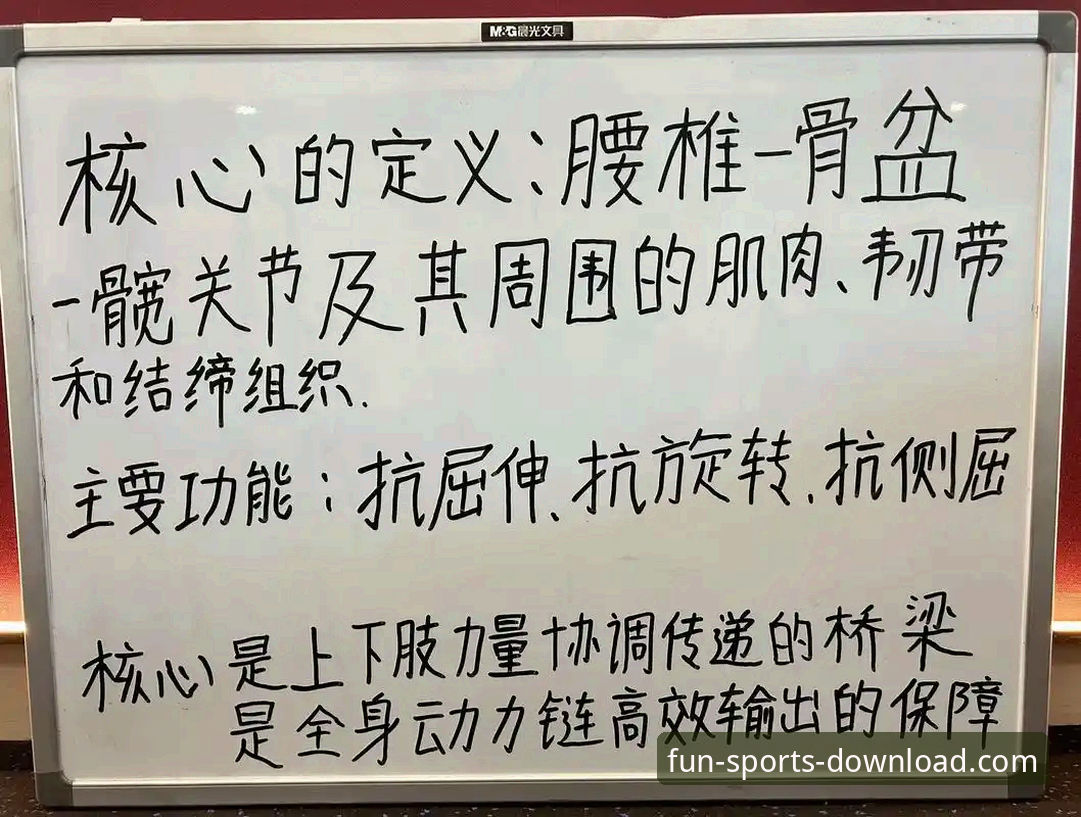 M&G晨光文具
核心的定义:腰椎-骨盆
-髋关节及其周围的肌肉、韧带
和结缔组织.
主要功能:抗屈伸、抗旋转、抗侧屈
核心是上下肢力量协调传递的桥梁
是全身动力链高效输出的保障
fun-sports-download.com